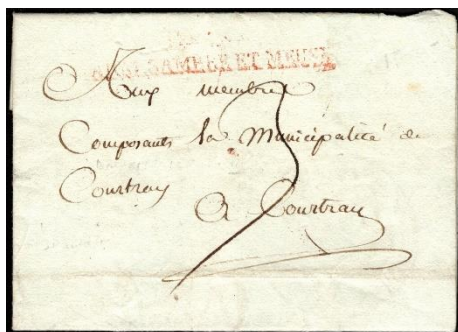 SAMBRE ET MEUSE
Aux membres
Composants la Municipalité de
Courtray
A Courtray
3